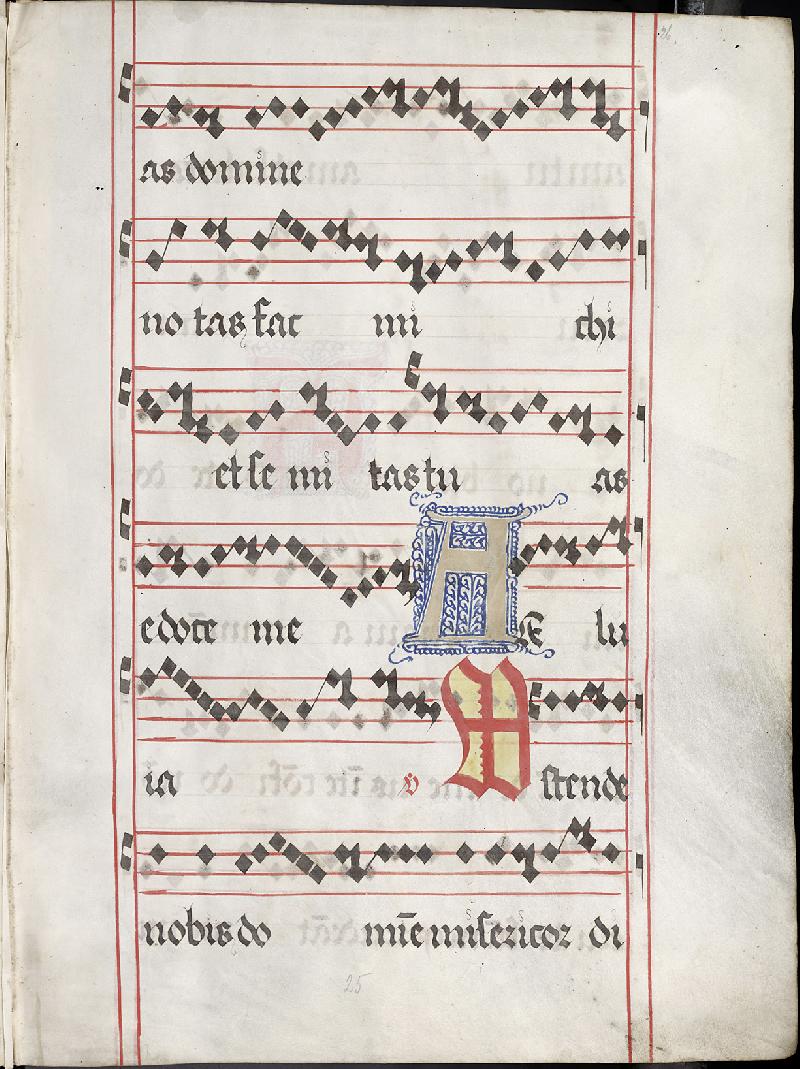 26
as domine
no tas fac mi chi
et se mi tas tu as
edoce me A lle lu
ia v Ostende
nobis do mīe misericor di
25